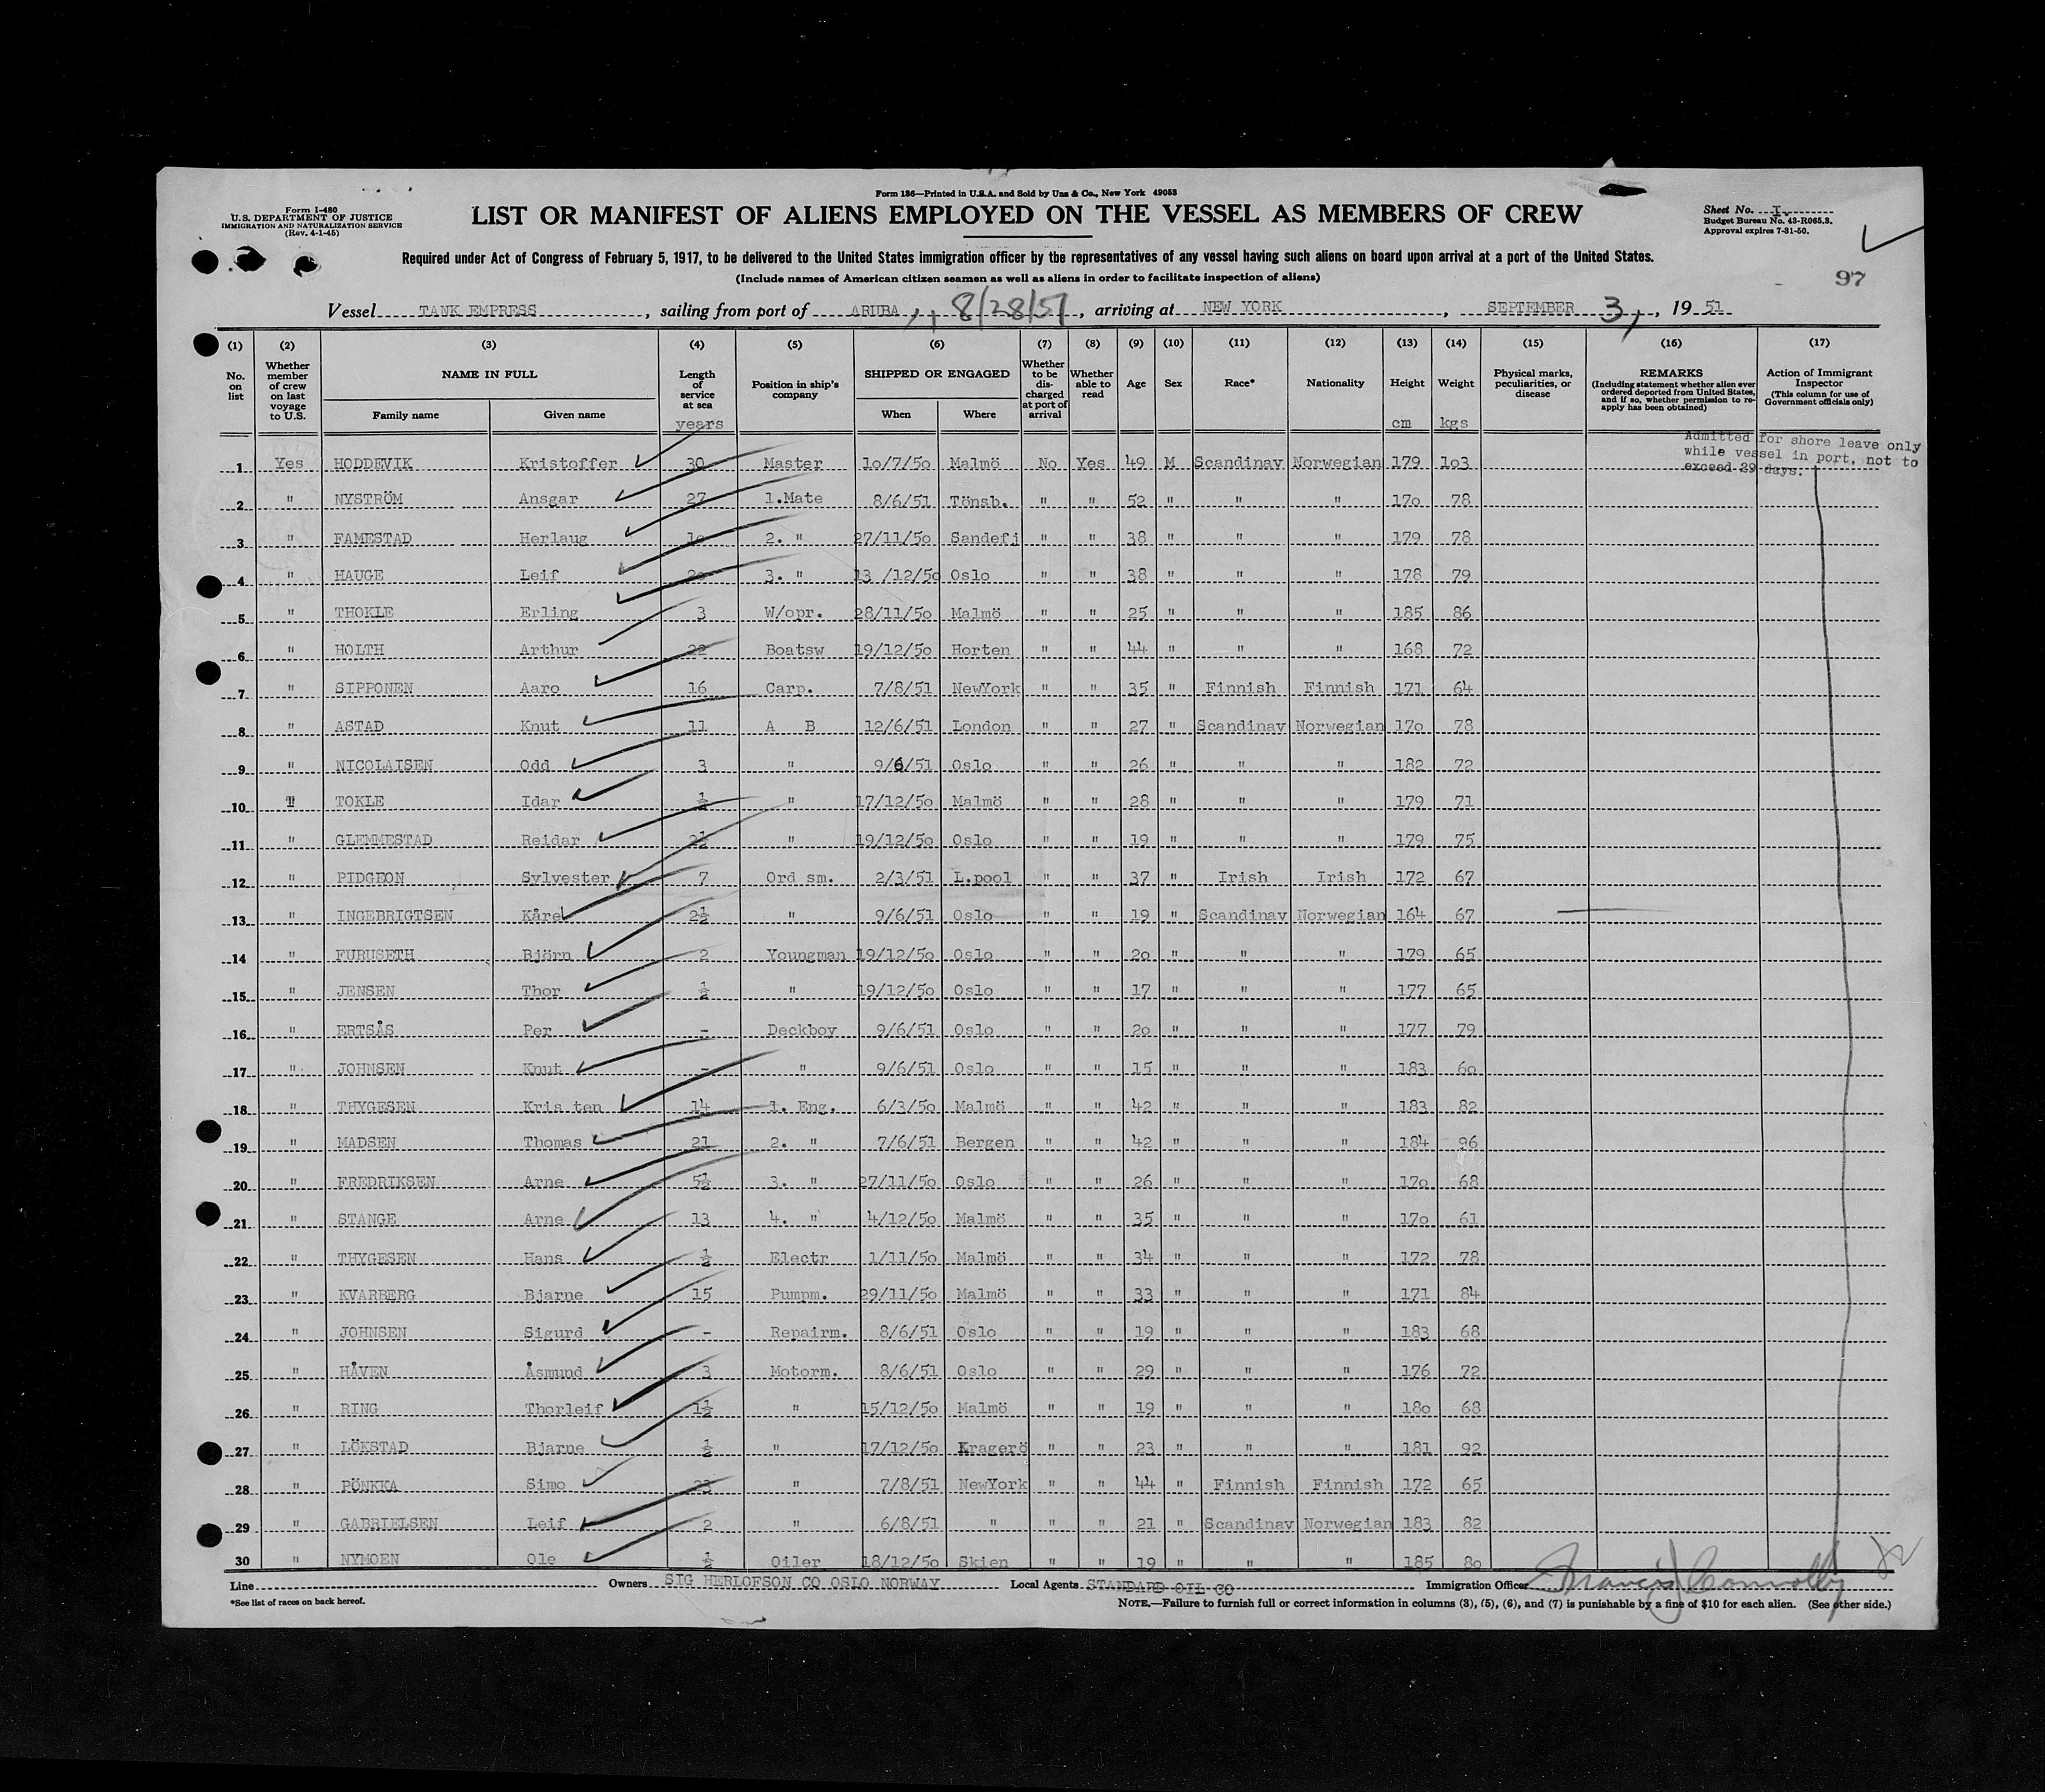 Form 136—Printed in U.S.A. and Sold by Unz & Co., New York 49058
Form I-480
U.S. DEPARTMENT OF JUSTICE
IMMIGRATION AND NATURALIZATION SERVICE
(Rev. 4-1-45)
LIST OR MANIFEST OF ALIENS EMPLOYED ON THE VESSEL AS MEMBERS OF CREW
Sheet No. I
Budget Bureau No. 43-R065.3.
Approval expires 7-31-50.
Required under Act of Congress of February 5, 1917, to be delivered to the United States immigration officer by the representatives of any vessel having such aliens on board upon arrival at a port of the United States.
(Include names of American citizen seamen as well as aliens in order to facilitate inspection of aliens)
97
Vessel TANK EMPRESS, sailing from port of ARUBA, 8/28/51, arriving at NEW YORK, SEPTEMBER 3, 19 51
(1) (2) (3) (4) (5) (6) (7) (8) (9) (10) (11) (12) (13) (14) (15) (16) (17)
No. on list
Whether member of crew on last voyage to U.S.
NAME IN FULL
Family name
Given name
Length of service at sea
years
Position in ship's company
SHIPPED OR ENGAGED
When
Where
Whether to be discharged at port of arrival
Whether able to read
Age
Sex
Race*
Nationality
Height
cm
Weight
kgs
Physical marks, peculiarities, or disease
REMARKS
(Including statement whether alien ever ordered deported from United States, and if so, whether permission to reapply has been obtained)
Action of Immigrant Inspector
(This column for use of Government officials only)
Admitted for shore leave only
while vessel in port, not to
exceed 29 days.
1 Yes HODDEVIK Kristoffer 30 Master 10/7/50 Malmö No Yes 49 M Scandinav Norwegian 179 103
2 " NYSTRÖM Ansgar 27 1.Mate 8/6/51 Tönsb. " " 52 " " " 170 78
3 " FAMESTAD Herlaug 10 2. " 27/11/50 Sandefj " " 38 " " " 179 78
4 " HAUGE Leif 20 3. " 13 /12/50 Oslo " " 38 " " " 178 79
5 " THOKLE Erling 3 W/opr. 28/11/50 Malmö " " 25 " " " 185 86
6 " HOLTH Arthur 22 Boatsw 19/12/50 Horten " " 44 " " " 168 72
7 " SIPPONEN Aaro 16 Carp. 7/8/51 NewYork " " 35 " Finnish Finnish 171 64
8 " ASTAD Knut 11 A B 12/6/51 London " " 27 " Scandinav Norwegian 170 78
9 " NICOLAISEN Odd 3 " 9/6/51 Oslo " " 26 " " " 182 72
10 " TOKLE Idar ½ " 17/12/50 Malmö " " 28 " " " 179 71
11 " GLEMMESTAD Reidar 2½ " 19/12/50 Oslo " " 19 " " " 179 75
12 " PIDGEON Sylvester 7 Ord sm. 2/3/51 L.pool " " 37 " Irish Irish 172 67
13 " INGEBRIGTSEN Kåre 2½ " 9/6/51 Oslo " " 19 " Scandinav Norwegian 164 67
14 " FURUSETH Björn 2 Youngman 19/12/50 Oslo " " 20 " " " 179 65
15 " JENSEN Thor ½ " 19/12/50 Oslo " " 17 " " " 177 65
16 " ERTSÅS Per - Deckboy 9/6/51 Oslo " " 20 " " " 177 79
17 " JOHNSEN Knut - " 9/6/51 Oslo " " 15 " " " 183 60
18 " THYGESEN Kris ten 14 1. Eng. 6/3/50 Malmö " " 42 " " " 183 82
19 " MADSEN Thomas 21 2. " 7/6/51 Bergen " " 42 " " " 184 96
20 " FREDRIKSEN Arne 5½ 3. " 27/11/50 Oslo " " 26 " " " 170 68
21 " STANGE Arne 13 4. " 4/12/50 Malmö " " 35 " " " 170 61
22 " THYGESEN Hans ½ Electr 1/11/50 Malmö " " 34 " " " 172 78
23 " KVARBERG Bjarne 15 Pumpm. 29/11/50 Malmö " " 33 " " " 171 84
24 " JOHNSEN Sigurd - Repairm. 8/6/51 Oslo " " 19 " " " 183 68
25 " HÅVEN Åsmund 3 Motorm. 8/6/51 Oslo " " 29 " " " 176 72
26 " RING Thorleif 1½ " 15/12/50 Malmö " " 19 " " " 180 68
27 " LÖKSTAD Bjarne ½ " 17/12/50 Kragerö " " 23 " " " 181 92
28 " PÖNKKA Simo 23 " 7/8/51 NewYork " " 44 " Finnish Finnish 172 65
29 " GABRIELSEN Leif 2 " 6/8/51 " " " 21 " Scandinav Norwegian 183 82
30 " NYMOEN Ole ½ Oiler 18/12/50 Skien " " 19 " " " 185 80
Line Owners SIG HERLOFSON CO OSLO NORWAY Local Agents STANDARD OIL CO Immigration Officer Francis J Connolly
*See list of races on back hereof.
NOTE.—Failure to furnish full or correct information in columns (3), (5), (6), and (7) is punishable by a fine of $10 for each alien. (See other side.)